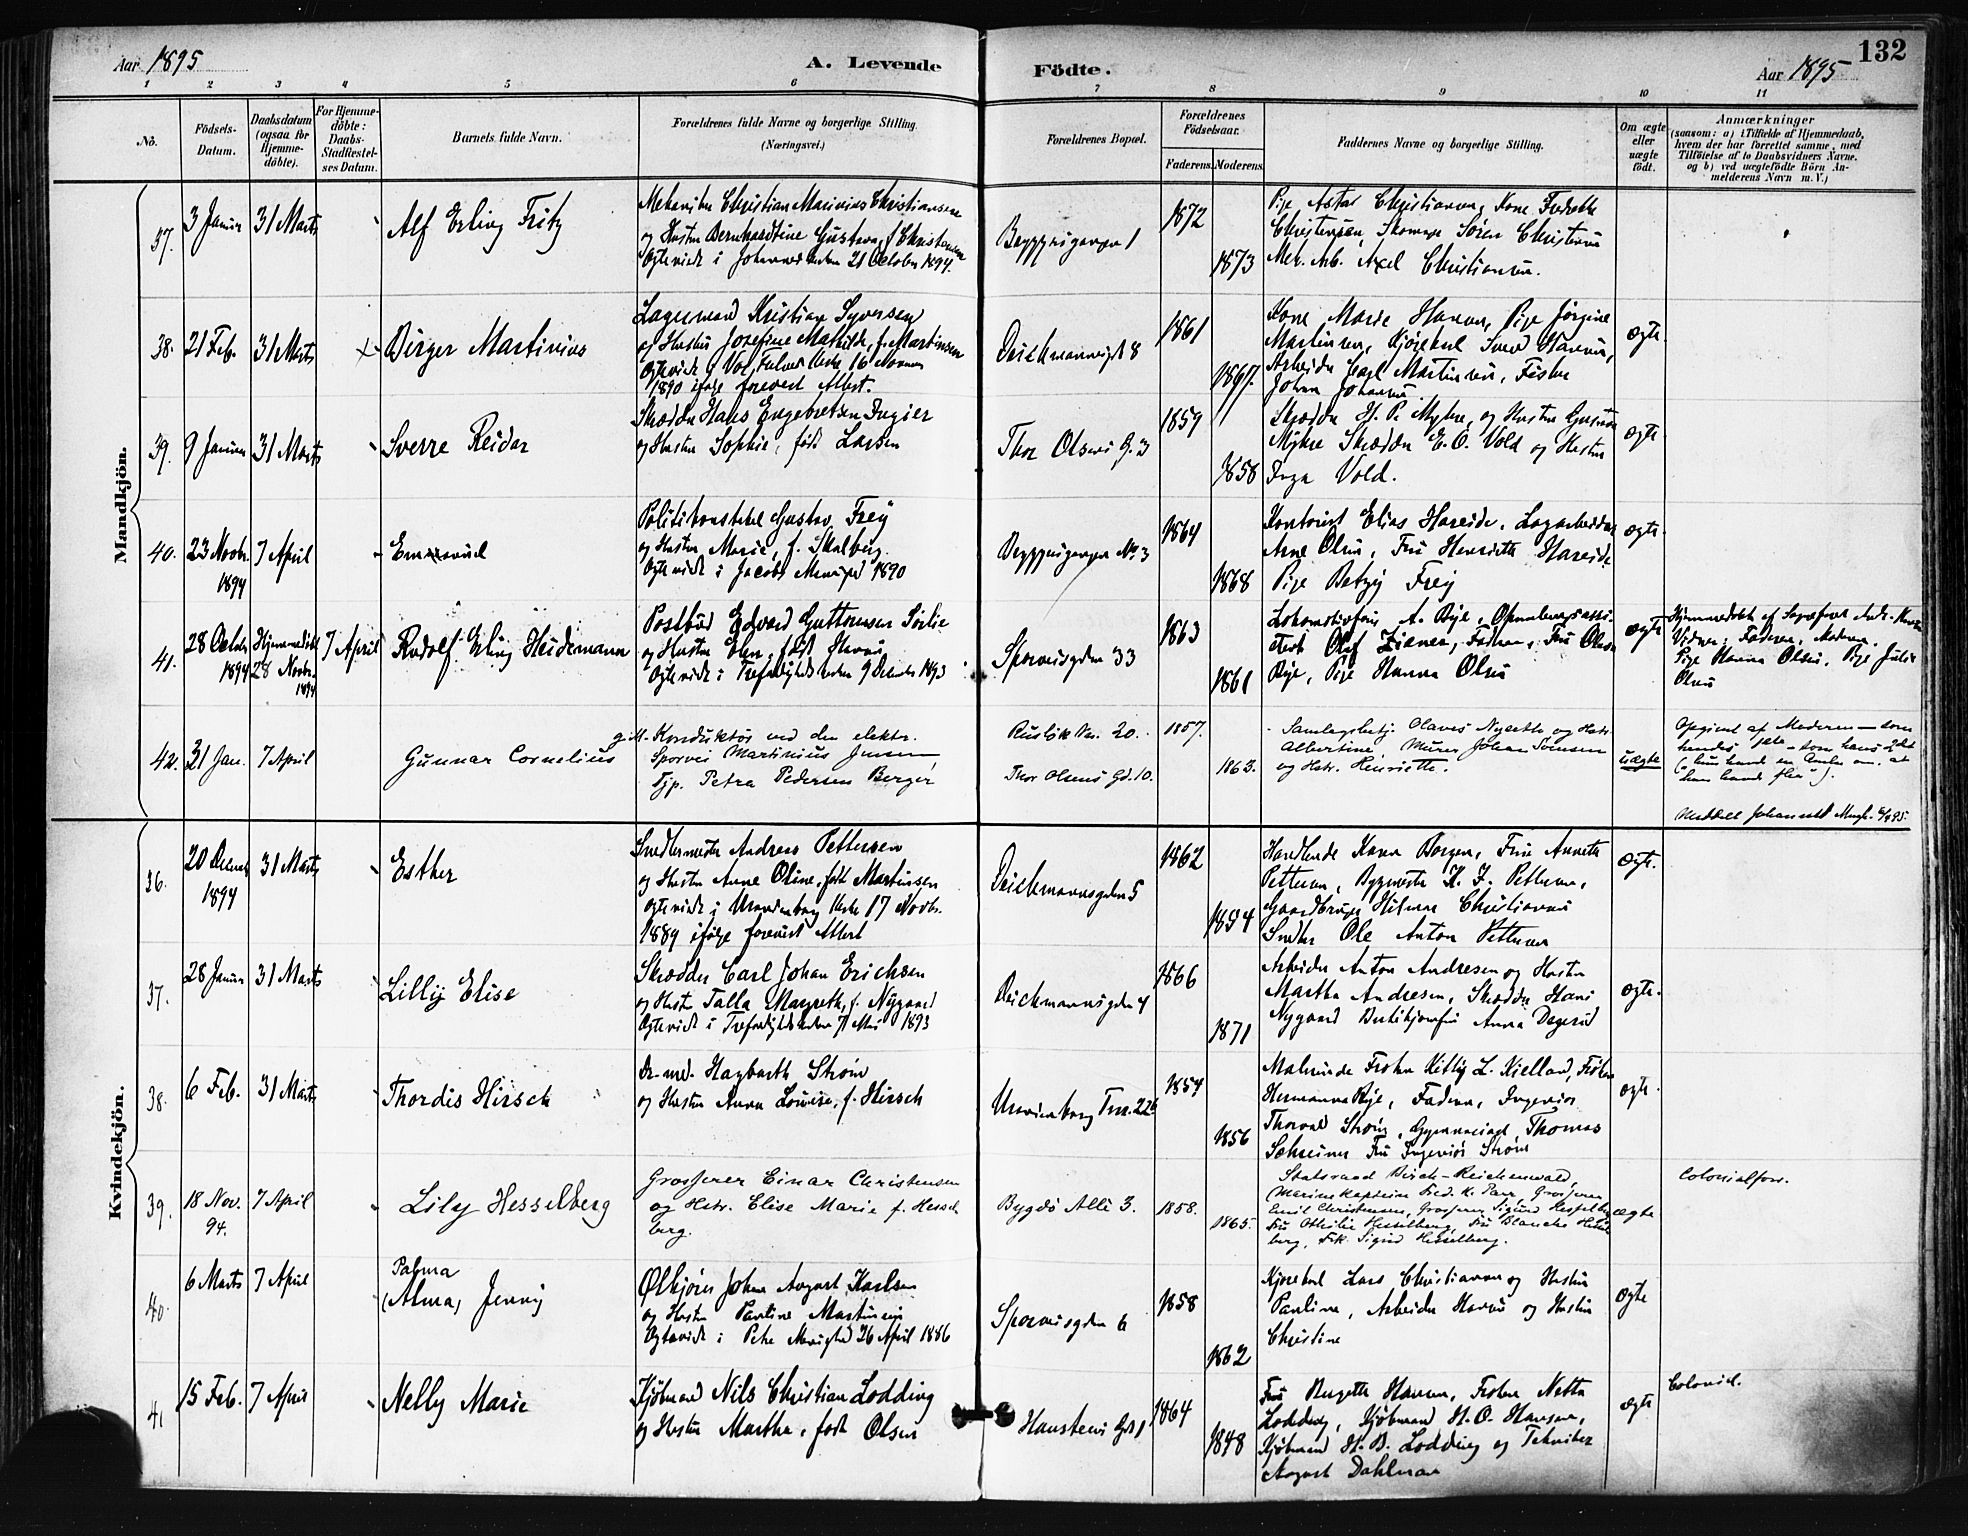 Aar 1895
A. Levende
Födte.
Aar 1895
132
1 2 3 4 5 6 7 8 9 10 11
No.
Födsels-Datum.
Daabsdatum (ogsaa for Hjemmedöbte).
For Hjemmedöbte: Daabs-Stadfæstelses Datum.
Barnets fulde Navn.
Forældrenes fulde Navne og borgerlige Stilling.
(Næringsvei.)
Forældrenes Bopæl.
Forældrenes Födselsaar.
Faderens. Moderens.
Faddernes Navne og borgerlige Stilling.
Om ægte eller uægte födt.
Anmærkninger
(saasom: a) i Tilfælde af Hjemmedaab,
hvem der har forrettet samme, med
Tilföielse af to Daabsvidners Navne,
og b) ved uægtefödte Börn Anmelderens Navn m. V.)
Mandkjön.
37. 3 Januar 31 Marts
Alf Erling Fritz
Mekaniker Christian Marinius Christiansen
og Hustru Bernhardtine Gustava, f. Christensen
Ægteviede i Johannes Kirken 21 October 1894.
1872
1873
Christensen, Skomager Sören Christensen
Mek. Arb. Axel Christiansen.
38. 21 Feb. 31 Marts
Birger Martinius
Lagermand Kristian Syversen
og Hustru Josefine Mathilde, f. Martinsen
1890 ifølge forevist Attest.
Deichmannsgd 8
1861
1867.
Kone Marie Hansen, Pige Jørgine
Martinsen, Kjørekarl Hansen,
Arbeider Carl Martinsen,
Johan Johansen
ægte
39. 9 Januar 31 Marts
Sverre Reidar
Skrædder Hans Engebretsen Fugier
og Hustru Sophie, född Larsen
Thor Olsens G. 3
1859
1858
Skrædder H. P. Myhre, og Hustru
Myhre Skrædder E. O. Vold og Hustru
Inga Vold.
ægte
40. 23 Novbr. 1894 7 April
Emanuel
Politikonstabel Gustav Frey
og Hustru Marie, f. Skalberg
Ægteviede i Jacobs Menighed 1890
No. 3
1864
1868
Kontorist Elias Hareide, Lagarbeider
Arne Olsen, Fru Henriette Hareide
Pige Betzy Frey
ægte
41. 28 October 1894 Hjemmedöbt 28 Novbr. 1894 7 April
Rudolf Erling Heidemann
Postbud Edvard Guttormsen Sørlie
og Hustru Ellen, född Hansen
Ægteviede i Trefoldigheds kirken 9 December 1893
Sporveisgden 33
1863
1861
A. Bye,
Olaf Fadren, Fru Olsen
Bye, Pige Hanna Olsen
ægte
Hjemmedøbt af
Vidner: Faderen, Moderen
Pige Hanna Olsen, Pige Julie
Olsen
42. 21 Jan. 7 April
Gunnar Cornelius
g. M. Konduktør ved den elektr.
Sporvei Martinius Jensen
Tjp. Petra Pedersen Berger
Rusløk No. 20.
Thor Olsens Gd. 10.
1857.
1863.
Olaves Nygaeth og Hstr.
Albertine, Murer Johan Tomsen
og Hstr. Henriette.
uægte
Opgivet af Moderen — som
hendes 1ste — som hans 2det
Meddelt Johannes Mengh.
Kvindekjön.
36. 20 Decemb. 1894 31 Marts
Esther
Snedkermester Andreas Pettersen
og Hustru Anne Oline, född Martinsen
Ægteviede i Uranienborg Kirke 17 Novbr.
1889 ifølge forevist Attest
Deichmannsgden 5
1862
1854
Handlende Karen Borgen, Frue Annette
Pettersen, Bygmester H. J. Pettersen,
Gaardbruger Hilmar Christiansen
Snedker Ole Anton Pettersen
ægte.
37. 28 Januar 31 Marts
Lilly Elise
Skrædder Carl Johan Erichsen
og Hustru Talla Margreth, f. Nygaard
Ægteviede i Trefoldigheds kirken 7 Mai 1893
Deichmannsgden 4
1866
1871
Arbeider Anton Andresen og Hustru
Martha Andresen, Skrædder Hans
Nygaard Butikjomfru Anna Degerud
ægte.
38. 6 Feb. 31 Marts
Thordis Hirsch
Dr. med. Hagbarth Strøm
og Hustru Anna Lovise, f. Hirsch
Uranienborg Terr. 22 b
1854
1856
Malerinde Frøken Kitty L. Kielland, Frøken
Hermanna Bye, Faderen, Ingeniør
Thorvald Strøm, Gymnasiast Thomas
Schreiner Fru Ingeniør Strøm
ægte.
39. 18 Nov. 94. 7 April
Lily Hesselberg
Grosserer Einar Christensen
og Hstr. Elise Marie f. Hesselberg.
Bygdö Allé 3.
1858.
1865.
Statsraad Birch-Reichenwald,
Marinekaptein Fred. K. Parr, Grosserer
Emil Christensen, Grosserer Sigurd Hesselberg
Fru Othilie Hesselberg, Fru Blanche Hesselberg,
Frk. Sigrid Hesselberg.
ægte
Colonialforr.
40. 6 Marts 7 April
Palma
(Alma) Jenny
Ølkjører Johan August Karlsen
og Hustru Pauline Martinsen
Ægteviede i Petri Menighed 26 April 1886
Sporveisgden 6
1858
1862
Kjørekarl Lars Christiansen og Hustru
Pauline, Arbeider Hansen og Hustru
Christine
ægte
41 15 Feb. 7 April
Nelly Marie
Kjøbmand Nils Christian Lodding
og Hustru Marthe, född Olsen
Hansteens Gd 1
1864
1848
Fru Bergette Hansen, Frøken Netta
Lodding, Kjøbmand H. O. Hansen,
Kjøbmand H. B. Lodding og Tekniker
August Dahlman
ægte
Colonial.